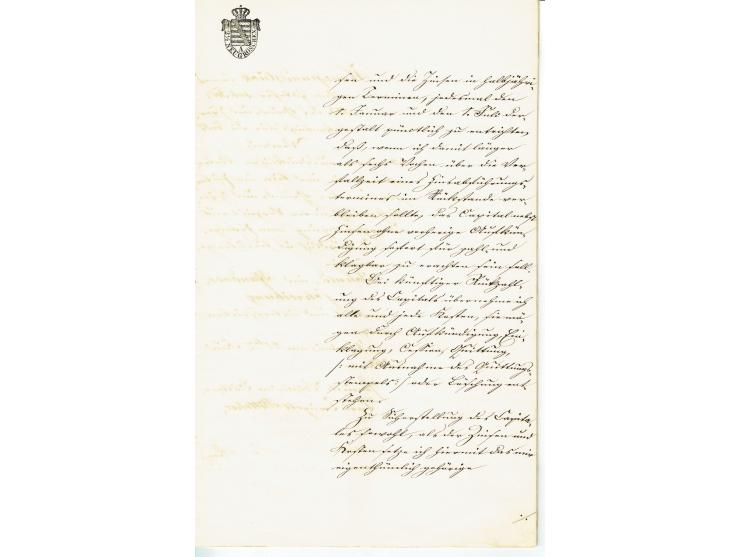 2½ NEUGROSCHEN
A
sen und die Zinsen in halbjähri-
gen Terminen, jedesmal den
1. Januar und den 1. Juli der-
gestalt pünktlich zu entrichten,
daß, wenn ich damit länger
als sechs Wochen über die Ver-
fallzeit eines Zinsabführungs-
termines im Rückstande ver-
bleiben sollte, das Capital nebst
Zinsen ohne vorherige Aufkün-
digung sofort für zahl- und
klagbar zu erachten sein soll.
Bei künftiger Rückzahl-
ung des Capitals übernehme ich
alle und jede Kosten, sie mö-
gen durch Aufkündigung, Ein-
klagung, Cession, Quittung,
/: mit Ausnahme des Quittungs-
stempels :/ oder Löschung ent-
stehen.
Zu Sicherstellung des Capita-
les sowohl, als der Zinsen und
Kosten setze ich hiermit das mir
eigenthümlich gehörige